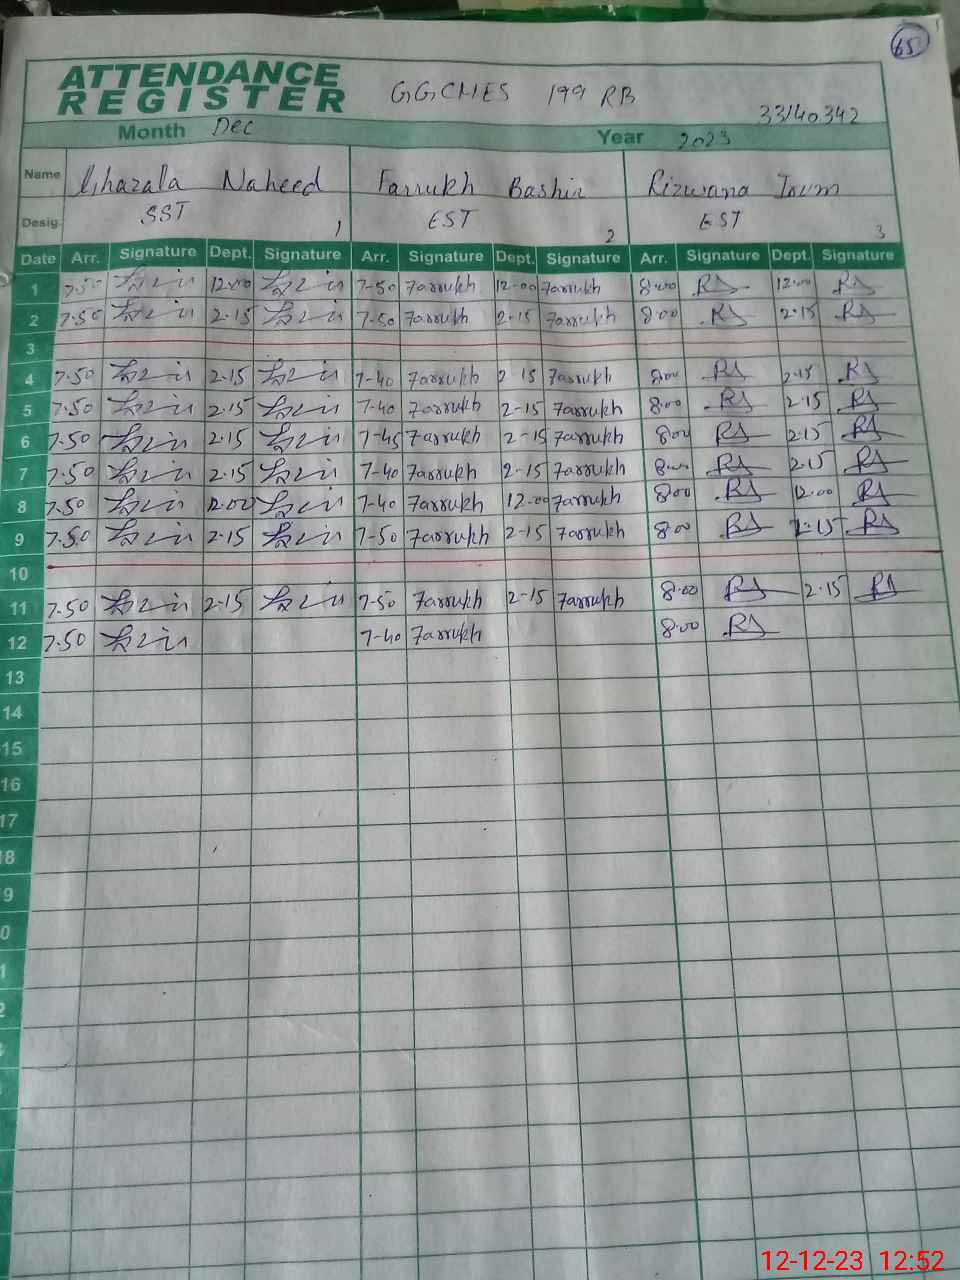 65
ATTENDANCE
REGISTER GGCMES 199 RB
33140342
Month Dec Year 2023
Name Ghazala Naheed Farrukh Bashir Rizwana Irum
Desig. SST 1 EST 2 EST 3
Date Arr. Signature Dept. Signature Arr. Signature Dept. Signature Arr. Signature Dept. Signature
1 7.50 12.00 7-50 Farrukh 12-00 Farrukh 8.00 12.00
2 7.50 2.15 7-50 Farrukh 2-15 Farrukh 8.00 2.15
3
4 7.50 2.15 7-40 Farrukh 2-15 Farrukh 8.00 2.15
5 7.50 2.15 7-40 Farrukh 2-15 Farrukh 8.00 2.15
6 7.50 2.15 7-45 Farrukh 2-15 Farrukh 8.00 2.15
7 7.50 2.15 7-40 Farrukh 2-15 Farrukh 8.00 2.15
8 7.50 12.00 7-40 Farrukh 12-00 Farrukh 8.00 12.00
9 7.50 2.15 7-50 Farrukh 2-15 Farrukh 8.00 2.15
10
11 7.50 2.15 7-50 Farrukh 2-15 Farrukh 8.00 2.15
12 7.50 7-40 Farrukh 8.00
13
14
15
16
17
18
9
0
1
2
12-12-23 12:52